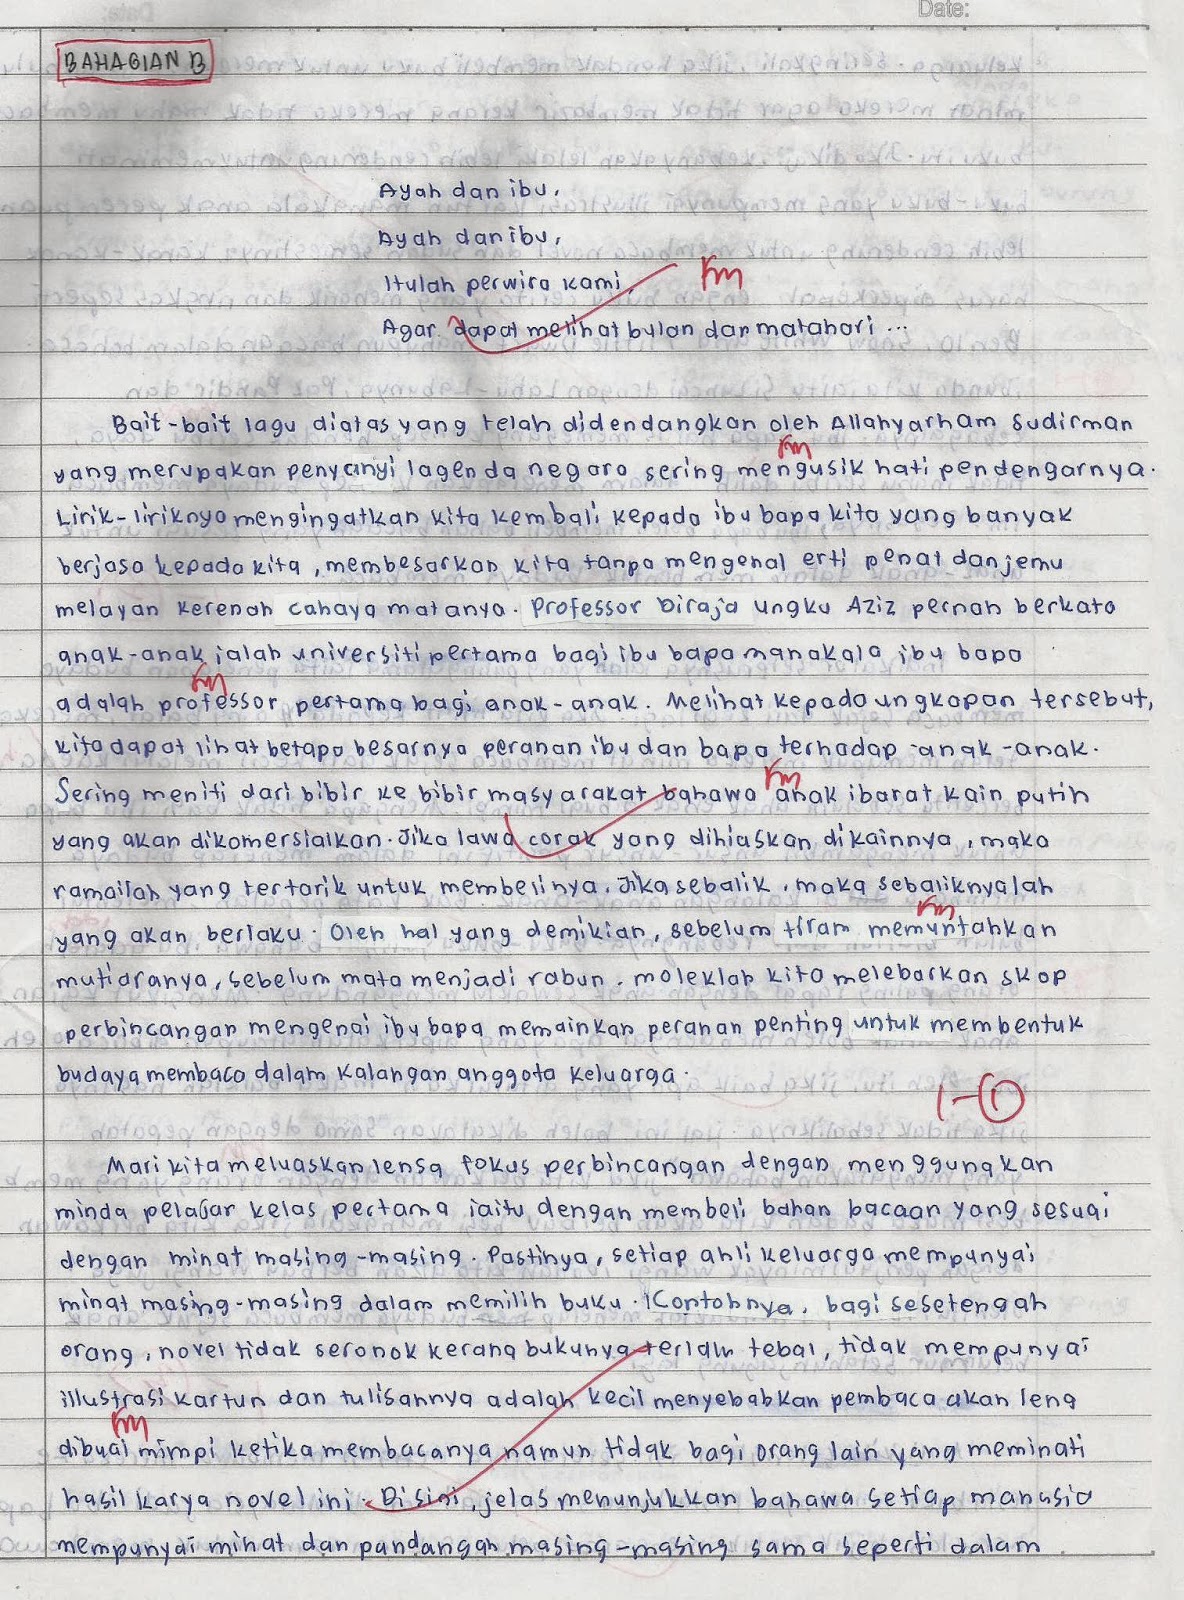 Date:
BAHAGIAN B
Ayah dan ibu,
Ayah dan ibu,
Itulah perwira kami,
km
Agar dapat melihat bulan dan matahari ...
Bait-bait lagu diatas yang telah didendangkan oleh Allahyarham Sudirman
km
yang merupakan penyanyi lagenda negara sering mengusik hati pendengarnya.
Lirik-liriknya mengingatkan kita kembali kepada ibu bapa kita yang banyak
berjasa kepada kita, membesarkan kita tanpa mengenal erti penat dan jemu
melayan kerenah cahaya matanya. Professor Diraja Ungku Aziz pernah berkata
anak-anak ialah universiti pertama bagi ibu bapa manakala ibu bapa
km
adalah professor pertama bagi anak-anak. Melihat kepada ungkapan tersebut,
kita dapat lihat betapa besarnya peranan ibu dan bapa terhadap anak-anak.
km
Sering meniti dari bibir ke bibir masyarakat bahawa anak ibarat kain putih
yang akan dikomersialkan. Jika lawa corak yang dihiaskan dikainnya, maka
ramailah yang tertarik untuk membelinya. Jika sebalik, maka sebaliknyalah
km
yang akan berlaku. Oleh hal yang demikian, sebelum tiram memuntahkan
mutiaranya, sebelum mata menjadi rabun, moleklah kita melebarkan skop
perbincangan mengenai ibu bapa memainkan peranan penting untuk membentuk
budaya membaca dalam kalangan anggota keluarga.
1-①
Mari kita meluaskan lensa fokus perbincangan dengan menggungkan
minda pelajar kelas pertama iaitu dengan membeli bahan bacaan yang sesuai
dengan minat masing-masing. Pastinya, setiap ahli keluarga mempunyai
minat masing-masing dalam memilih buku. Contohnya, bagi sesetengah
orang, novel tidak seronok kerana bukunya terlalu tebal, tidak mempunyai
illustrasi kartun dan tulisannya adalah kecil menyebabkan pembaca akan lena
km
dibuai mimpi ketika membacanya namun tidak bagi orang lain yang meminati
hasil karya novel ini. Di sini, jelas menunjukkan bahawa setiap manusia
mempunyai minat dan pandangan masing-masing sama seperti dalam